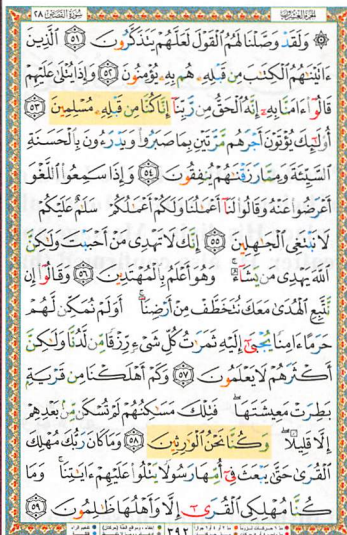 الجزء العشرون سورة القصص ٢٨
۞ وَلَقَدْ وَصَّلْنَا لَهُمُ الْقَوْلَ لَعَلَّهُمْ يَتَذَكَّرُونَ ٥١ الَّذِينَ
ءَاتَيْنَٰهُمُ الْكِتَٰبَ مِن قَبْلِهِۦ هُم بِهِۦ يُؤْمِنُونَ ٥٢ وَإِذَا يُتْلَىٰ عَلَيْهِمْ
قَالُوٓا۟ ءَامَنَّا بِهِۦٓ إِنَّهُ الْحَقُّ مِن رَّبِّنَآ إِنَّا كُنَّا مِن قَبْلِهِۦ مُسْلِمِينَ ٥٣
أُو۟لَٰٓئِكَ يُؤْتَوْنَ أَجْرَهُم مَّرَّتَيْنِ بِمَا صَبَرُوا۟ وَيَدْرَءُونَ بِالْحَسَنَةِ
السَّيِّئَةَ وَمِمَّا رَزَقْنَٰهُمْ يُنفِقُونَ ٥٤ وَإِذَا سَمِعُوا۟ اللَّغْوَ
أَعْرَضُوا۟ عَنْهُ وَقَالُوا۟ لَنَآ أَعْمَٰلُنَا وَلَكُمْ أَعْمَٰلُكُمْ سَلَٰمٌ عَلَيْكُمْ
لَا نَبْتَغِى الْجَٰهِلِينَ ٥٥ إِنَّكَ لَا تَهْدِى مَنْ أَحْبَبْتَ وَلَٰكِنَّ
اللَّهَ يَهْدِى مَن يَشَآءُ ۚ وَهُوَ أَعْلَمُ بِالْمُهْتَدِينَ ٥٦ وَقَالُوٓا۟ إِن
نَّتَّبِعِ الْهُدَىٰ مَعَكَ نُتَخَطَّفْ مِنْ أَرْضِنَآ ۚ أَوَلَمْ نُمَكِّن لَّهُمْ
حَرَمًا ءَامِنًا يُجْبَىٰٓ إِلَيْهِ ثَمَرَٰتُ كُلِّ شَىْءٍ رِّزْقًا مِّن لَّدُنَّا وَلَٰكِنَّ
أَكْثَرَهُمْ لَا يَعْلَمُونَ ٥٧ وَكَمْ أَهْلَكْنَا مِن قَرْيَةٍ
بَطِرَتْ مَعِيشَتَهَا ۖ فَتِلْكَ مَسَٰكِنُهُمْ لَمْ تُسْكَن مِّنۢ بَعْدِهِمْ
إِلَّا قَلِيلًا ۖ وَكُنَّا نَحْنُ الْوَٰرِثِينَ ٥٨ وَمَا كَانَ رَبُّكَ مُهْلِكَ
الْقُرَىٰ حَتَّىٰ يَبْعَثَ فِىٓ أُمِّهَا رَسُولًا يَتْلُوا۟ عَلَيْهِمْ ءَايَٰتِنَا ۚ وَمَا
كُنَّا مُهْلِكِى الْقُرَىٰٓ إِلَّا وَأَهْلُهَا ظَٰلِمُونَ ٥٩
٣٩٢